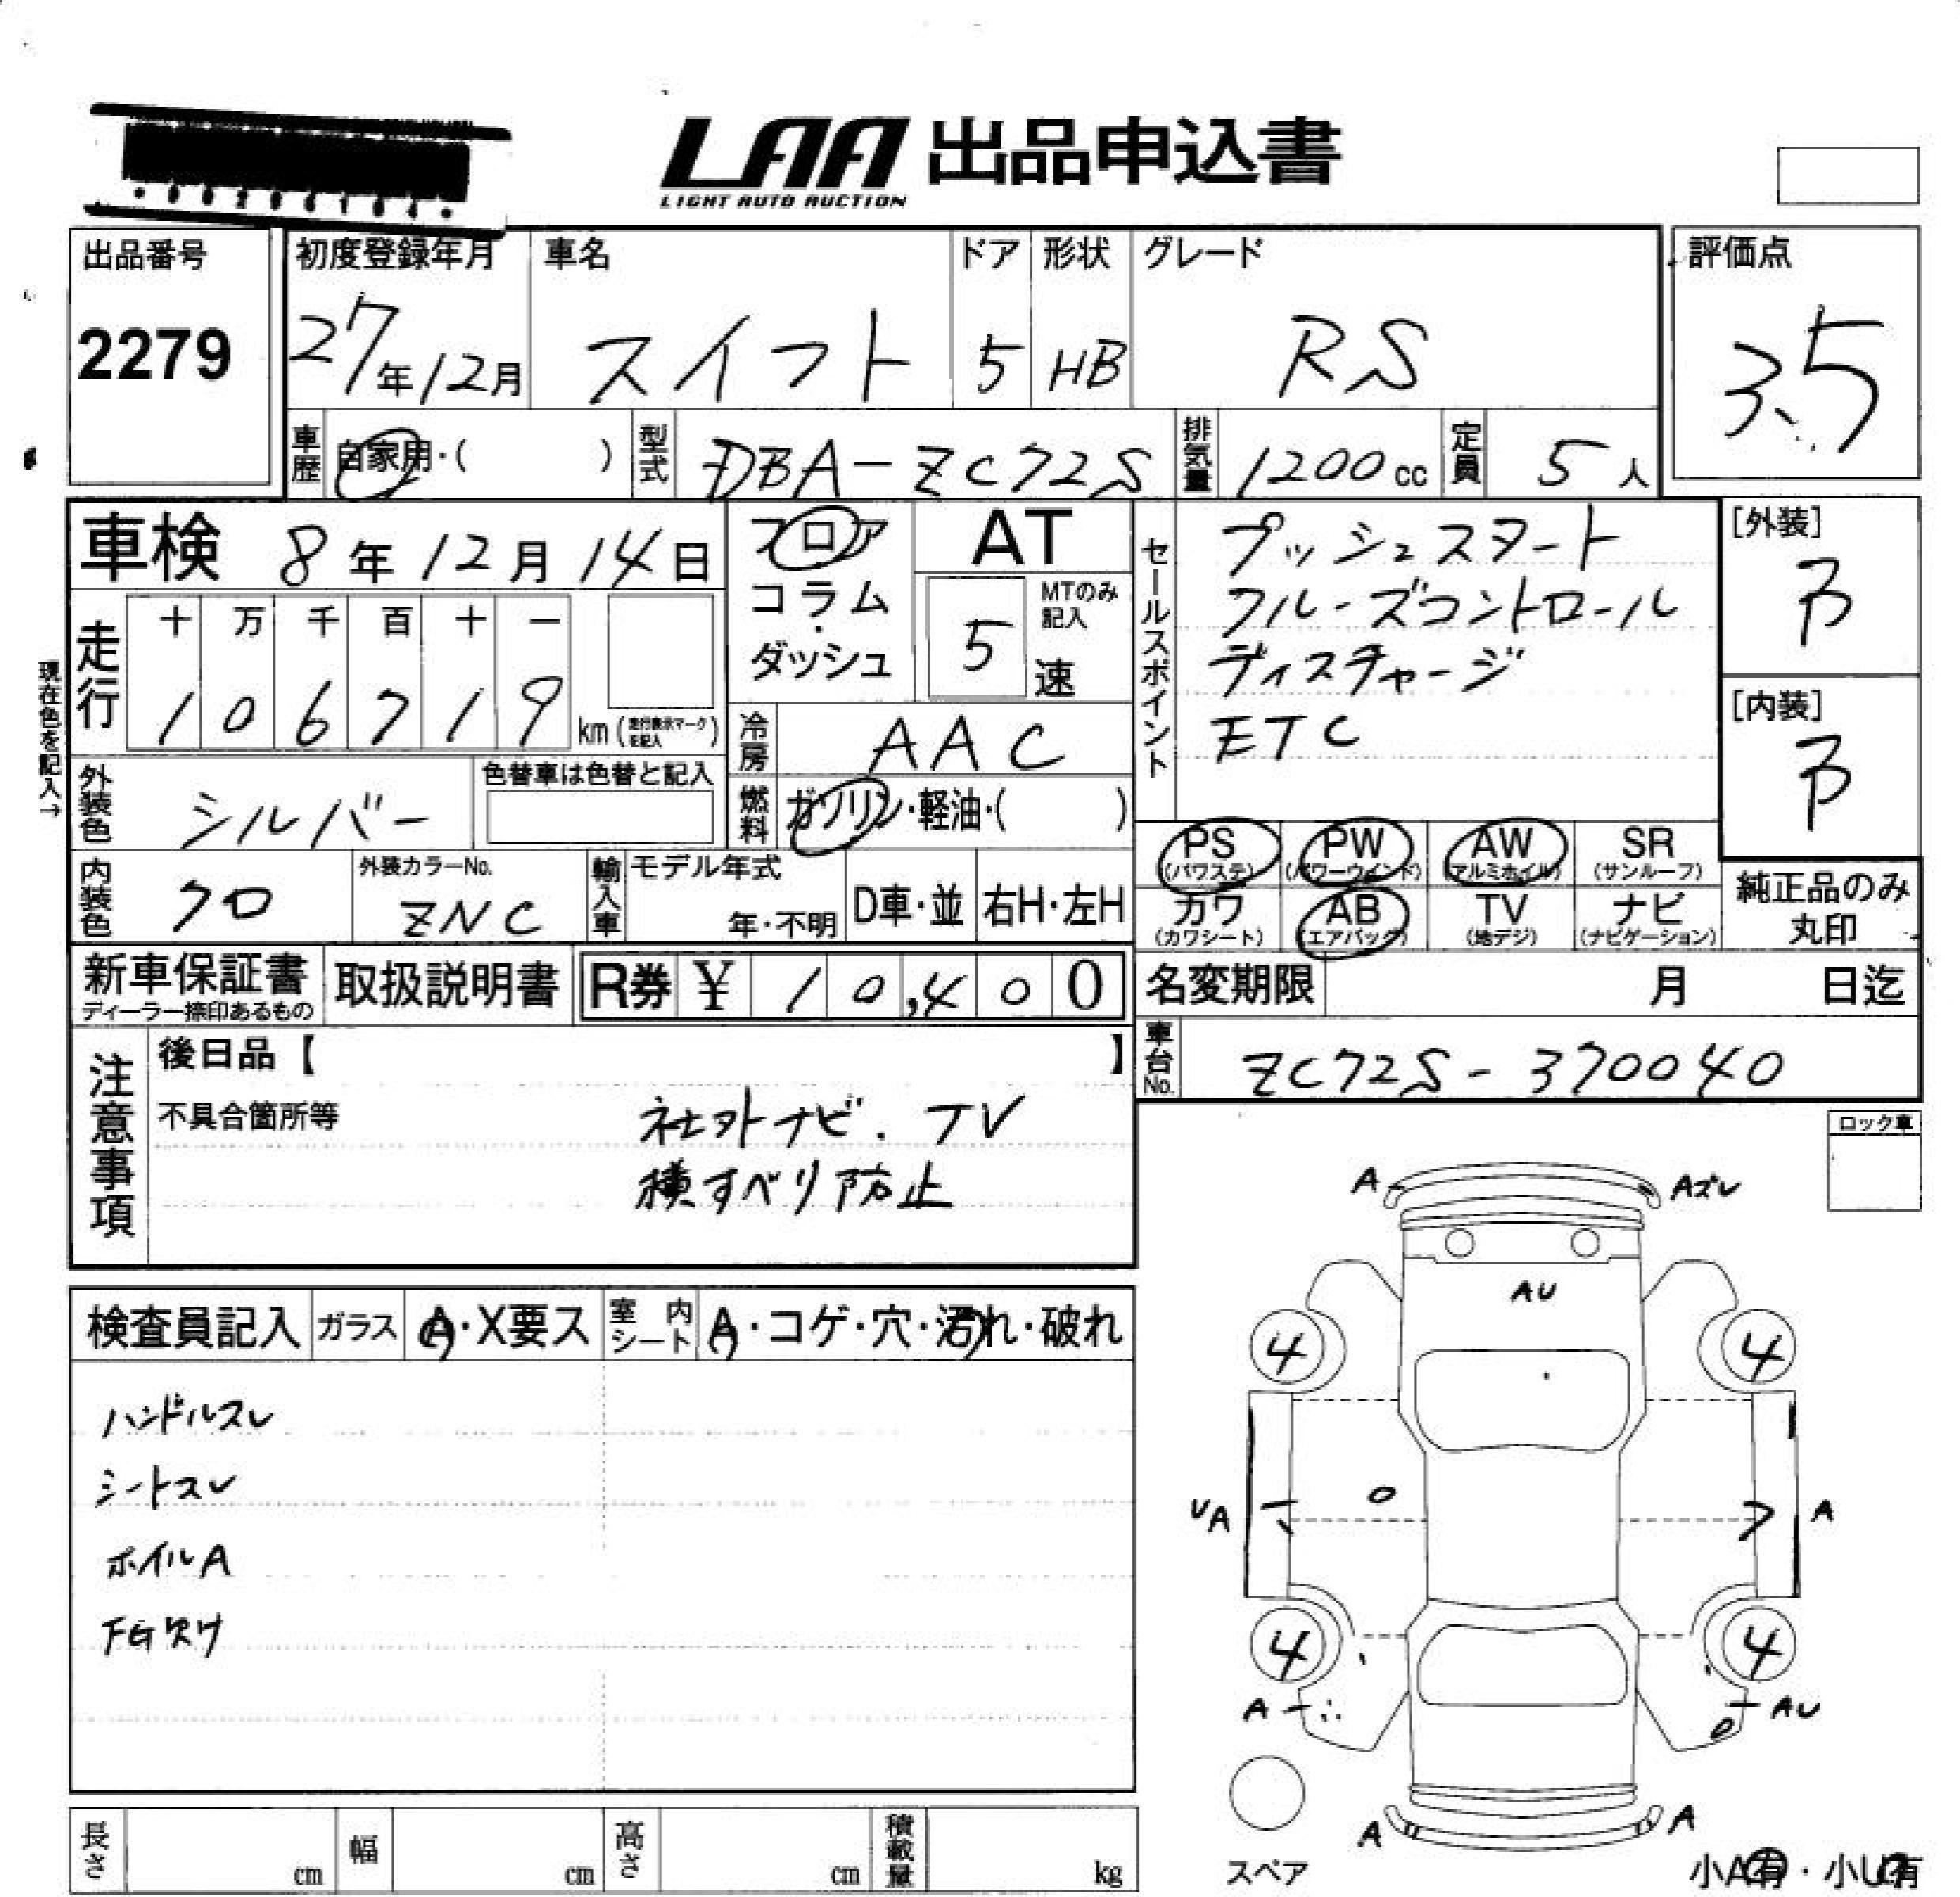 LAA 出品申込書
LIGHT AUTO AUCTION
出品番号
2279
初度登録年月
27年12月
車名
スイフト
ドア
5
形状
HB
グレード
RS
評価点
3.5
車歴
自家用・( )
型式
DBA-ZC72S
排気量
1200cc
定員
5人
車検 8年12月14日
フロア
コラム
・
ダッシュ
AT
MTのみ記入
5速
セールスポイント
プッシュスタート
クルーズコントロール
ディスチャージ
ETC
[外装]
B
[内装]
B
現在色を記入→
走行
十 万 千 百 十 一
1 0 6 7 1 9
km (走行表示マークを記入)
冷房
AAC
外装色
シルバー
色替車は色替と記入
燃料
ガソリン・軽油・( )
内装色
クロ
外装カラーNo.
ZNC
輸入車
モデル年式
年・不明
D車・並
右H・左H
PS (パワステ)
PW (パワーウインド)
AW (アルミホイル)
SR (サンルーフ)
カワ (カワシート)
AB (エアバッグ)
TV (地デジ)
ナビ (ナビゲーション)
純正品のみ
丸印
新車保証書
ディーラー捺印あるもの
取扱説明書
R券 ¥ 10,400
名変期限 月 日迄
車台No.
ZC72S-370040
注意事項
後日品【 】
不具合箇所等
社外ナビ.TV
横すべり防止
ロック車
検査員記入
ガラス
A・X要ス
室内シート
A・コゲ・穴・汚れ・破れ
ハンドルスレ
シートスレ
ホイルA
FG欠け
A
Aズレ
AU
4
4
UA
A
4
4
A
AU
A
A
スペア
小A有・小U有
長さ cm
幅 cm
高さ cm
積載量 kg